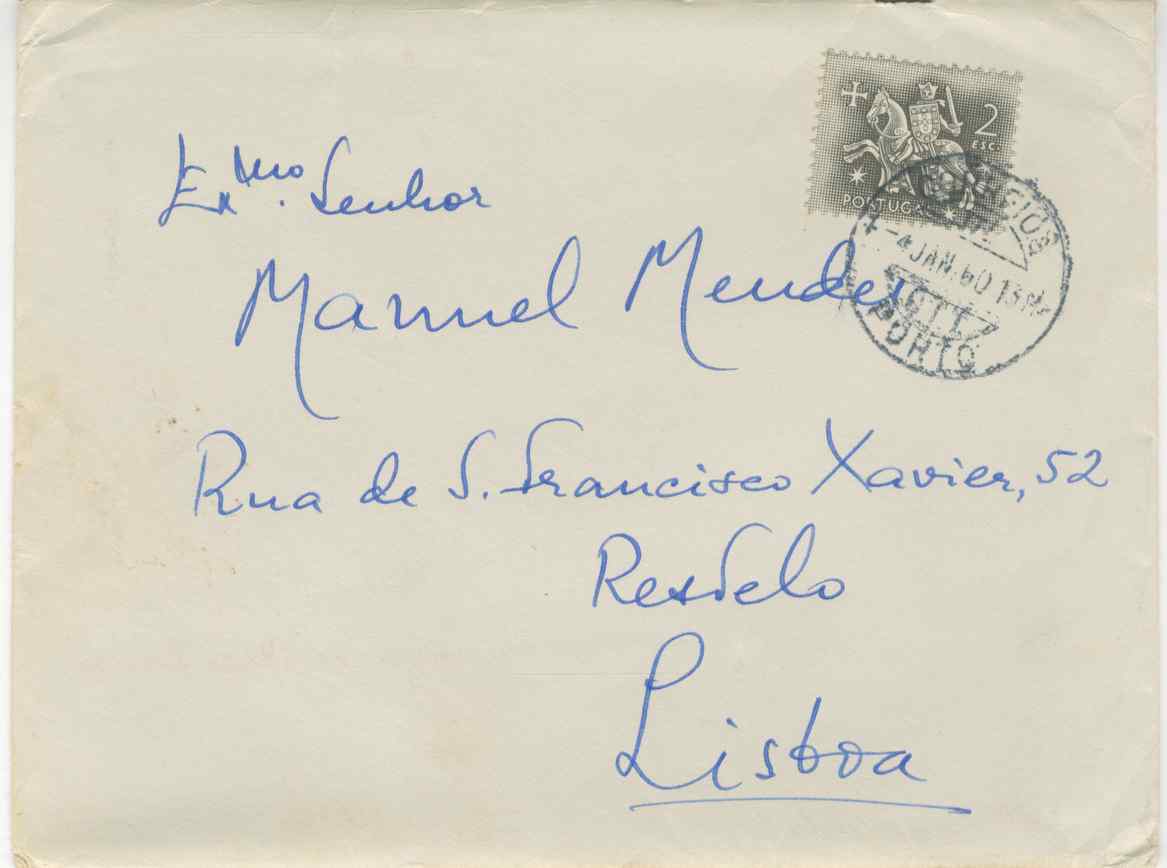 2
ESC.
PORTUGAL
-4 JAN. 60 13
CTT
PORTO
Ex.mo Senhor
Manuel Mendes
Rua de S. Francisco Xavier, 52
Restelo
Lisboa